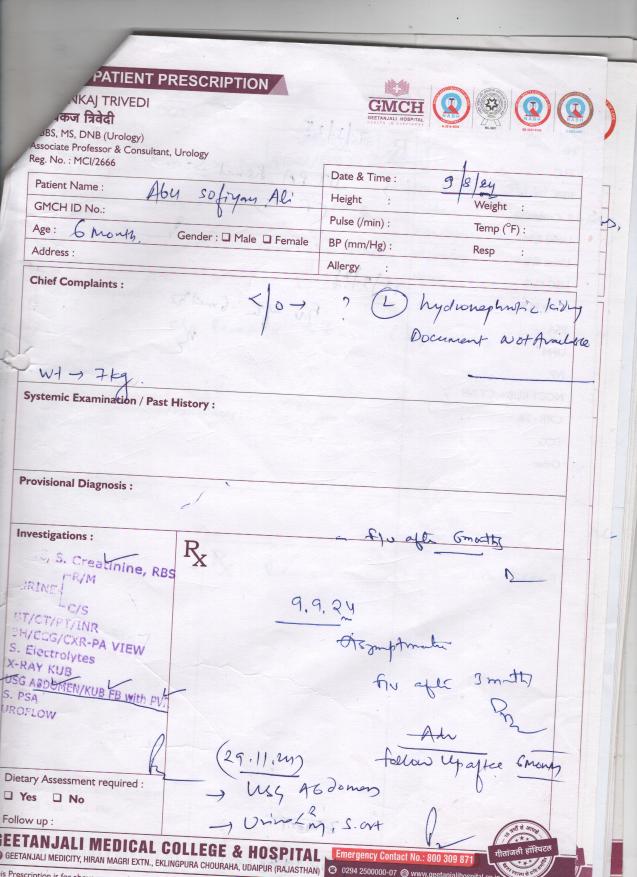 PATIENT PRESCRIPTION
NKAJ TRIVEDI
कज त्रिवेदी
BBS, MS, DNB (Urology)
Associate Professor & Consultant, Urology
Reg. No. : MCI/2666
GMCH
GEETANJALI HOSPITAL
Patient Name : Abu Sofiyan Ali
GMCH ID No.:
Age : 6 Month. Gender : Male Female
Address :
Date & Time : 9/8/24
Height : Weight :
Pulse (/min) : Temp (°F) :
BP (mm/Hg) : Resp :
Allergy :
Chief Complaints :
c/o → ? L hydronephrotic kidney
Document Not Available
Wt → 7kg.
Systemic Examination / Past History :
Provisional Diagnosis :
f/u after 6 months
Investigations :
Rx
S. Creatinine, RBS
R/M
URINE
C/S
BT/CT/PT/INR
/CXR-PA VIEW
S. Electrolytes
X-RAY KUB
USG ABDOMEN/KUB FB with PV
S. PSA
UROFLOW
9.9.24
Asymptomatic
f/u after 3 months
Adv
follow Up after 6 months
(29.11.24)
→ USG Abdomen
→ Urine
Dietary Assessment required :
Yes No
Follow up :
GEETANJALI MEDICAL COLLEGE & HOSPITAL
GEETANJALI MEDICITY, HIRAN MAGRI EXTN., EKLINGPURA CHOURAHA, UDAIPUR (RAJASTHAN)
Emergency Contact No.: 800 309 871
0294 2500000-07
गीतांजली हॉस्पिटल